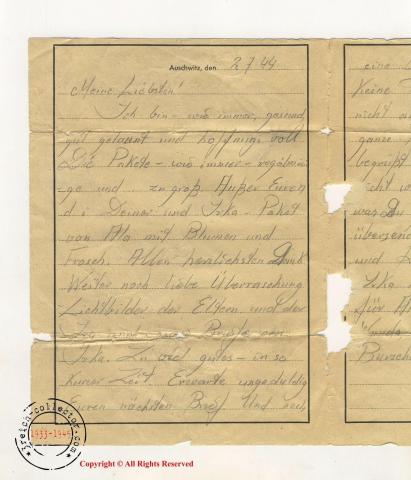 Auschwitz, den 2.7.44
Meine Liebsten!
Ich bin - wie immer, gesund,
gut gelaunt und hoffnungsvoll
Die Pakete - wie immer -
ge und zu groß. Außer Euren
d. i. Deiner und Irka - Paket
von Ala mit Blumen und
Frosch. Allen herzlichsten Dank
Weiter noch liebe Überraschung
Lichtbilder der Eltern und der
Briefe von
Irka. Zu viel gutes - in so
kurzer Zeit. Erwarte ungeduldig
Euren nächsten Brief. Und
eine
Keine
nicht
ganze
begreift
nicht
war
übersen
und
Irka
für
Bursche
3reich-collector.com
1933-1945
Copyright © All Rights Reserved